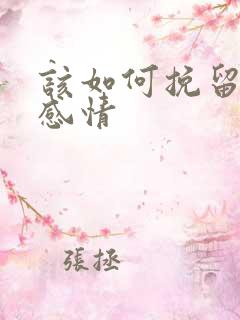 該如何挽留
感情
張拯